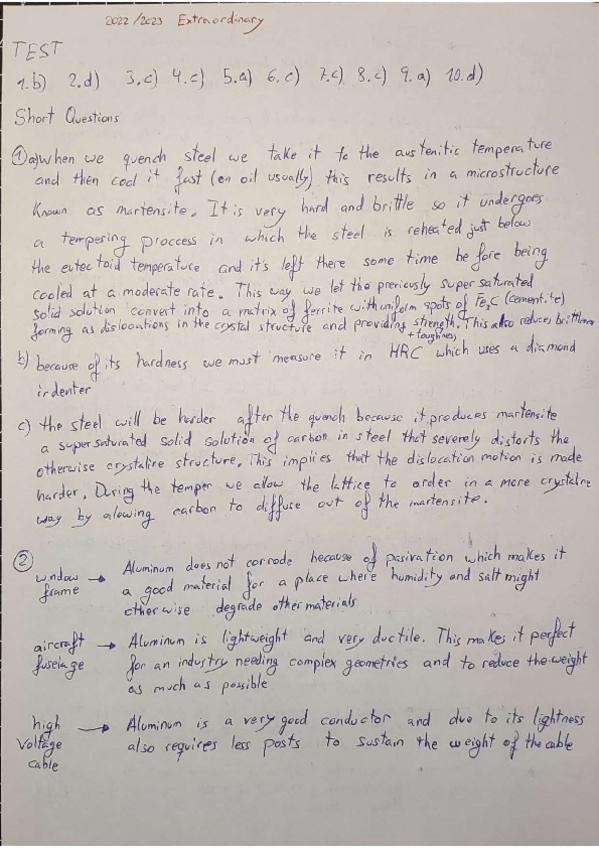 2022/2023 Extraordinary
TEST
1.b) 2.d) 3.c) 4.c) 5.a) 6.c) 7.c) 8.c) 9.a) 10.d)
Short Questions
① a) When we quench steel we take it to the austenitic temperature
and then cool it fast (on oil usually) this results in a microstructure
known as martensite. It is very hard and brittle so it undergoes
a tempering proccess in which the steel is reheated just below
the eutectoid temperature and it's left there some time before being
cooled at a moderate rate. This way we let the previously supersaturated
solid solution convert into a matrix of ferrite with uniform spots of Fe3C (cementite)
forming as dislocations in the crystal structure and providing strength. This also reduces brittleness
+ toughness
b) because of its hardness we must measure it in HRC which uses a diamond
indenter
c) the steel will be harder after the quench because it produces martensite
a supersaturated solid solution of carbon in steel that severely distorts the
otherwise crystaline structure. This implies that the dislocation motion is made
harder. During the temper we allow the lattice to order in a more crystaline
way by alowing carbon to diffuse out of the martensite.
②
window frame → Aluminum does not corrode because of pasivation which makes it
a good material for a place where humidity and salt might
otherwise degrade other materials
aircraft fuselage → Aluminum is lightweight and very ductile. This makes it perfect
for an industry needing complex geometries and to reduce the weight
as much as possible
high voltage cable → Aluminum is a very good conductor and due to its lightness
also requires less posts to sustain the weight of the cable